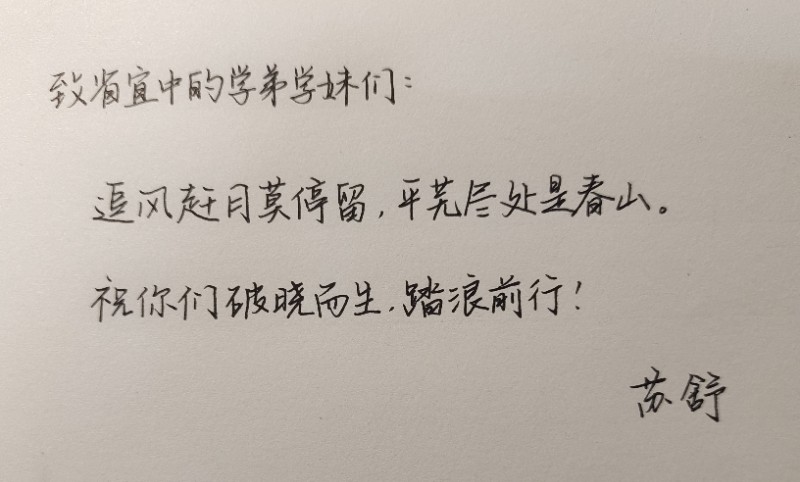 致省宜中的学弟学妹们：
追风赶月莫停留，平芜尽处是春山。
祝你们破晓而生，踏浪前行！
苏舒